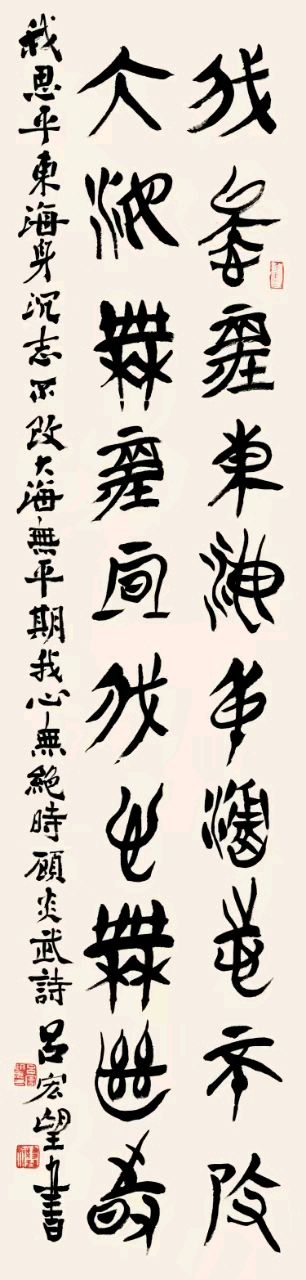 我思平東海身沉志不改
大海無平期我心無絕時
我思平東海身沉志不改大海無平期我心無絕時顧炎武詩 呂宏望書